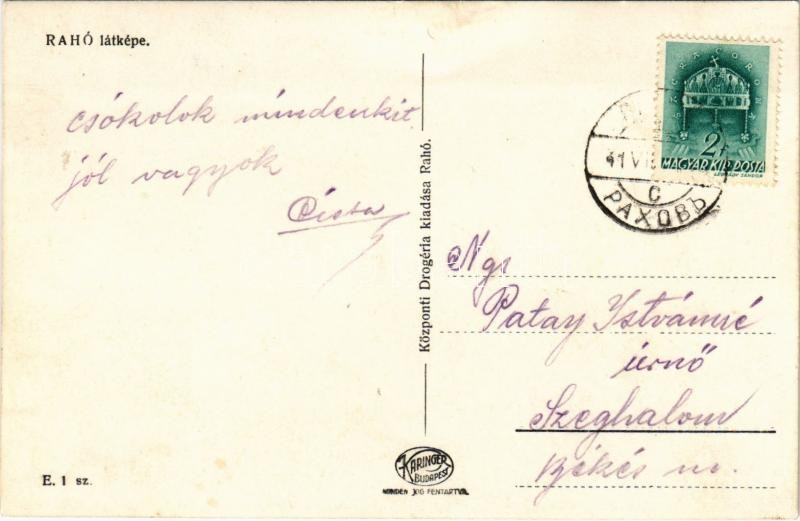 RAHÓ látképe.
csókolok mindenkit
jól vagyok
Központi Drogéria kiadása Rahó.
SACRA CORONA
2f
MAGYAR KIR. POSTA
LÉGRÁDY SÁNDOR
41 VI
C
РАХОВЪ
Ngs
Patay Istvánné
úrnő
Szeghalom
Békés m.
KARINGER
BUDAPEST
MINDEN JOG FENTARTVA.
E. 1 sz.